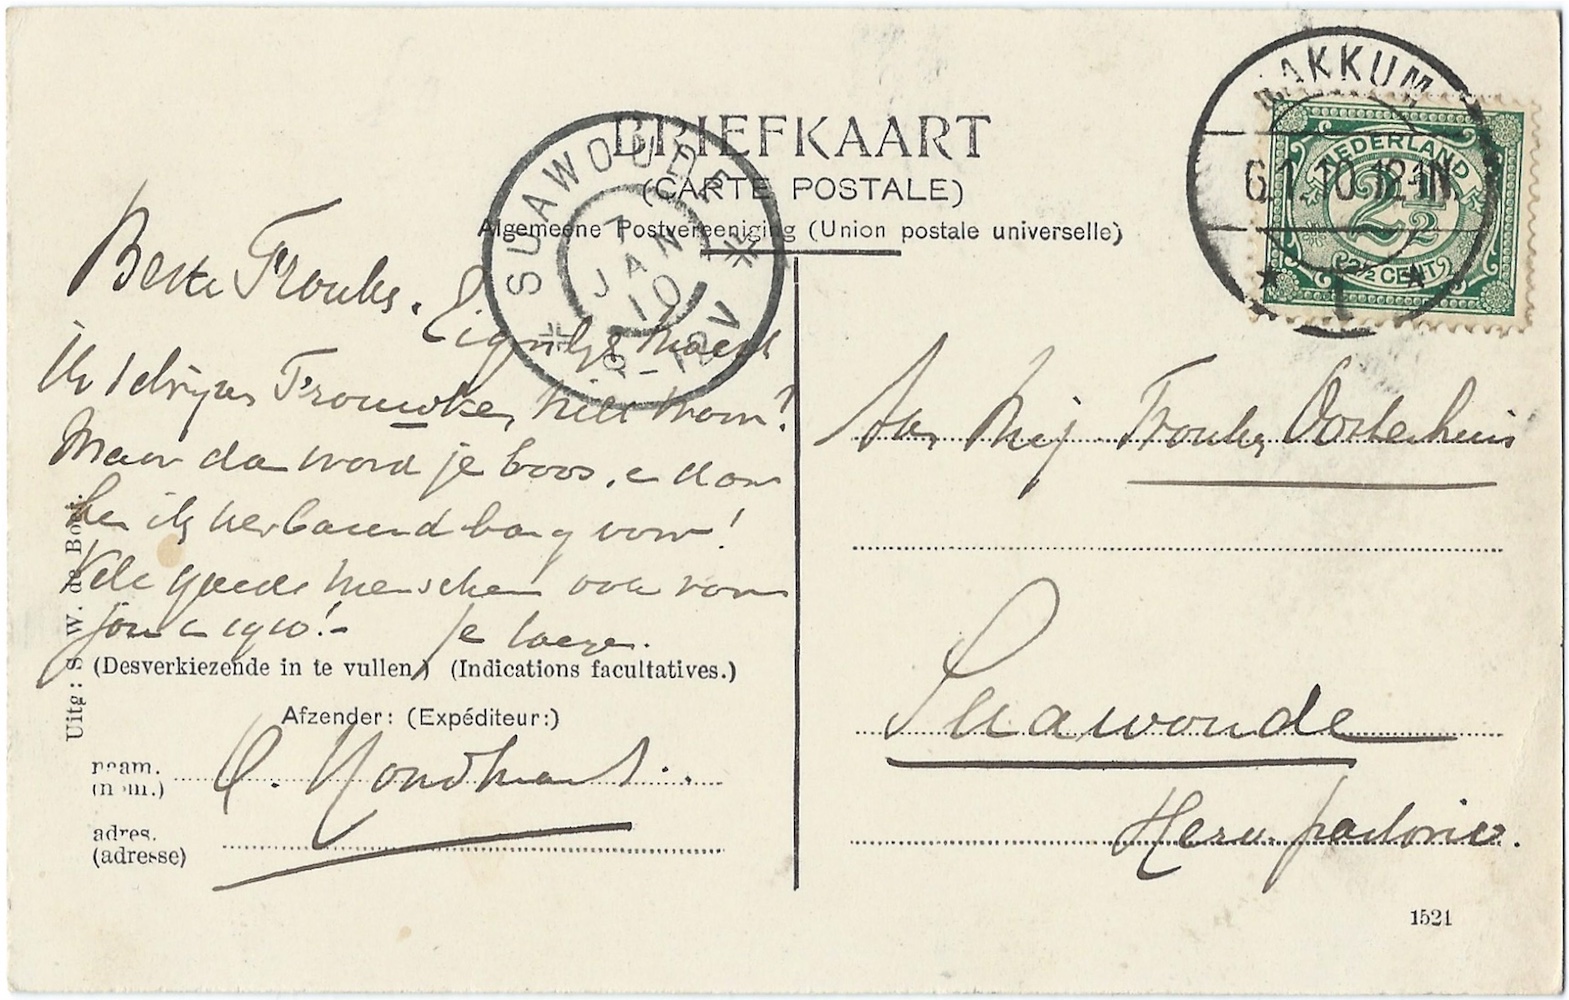 BRIEFKAART
(CARTE POSTALE)
Algemeene Postvereeniging (Union postale universelle)
AKKUM
6.1.10.12-1N
1
NEDERLAND
2½
2½ CENT
SUAWOUDE
7
JAN
10
8-10V
Beste Frouke. Eigenlijk moest
ik schrijven Frouwke, niet waar?
Maar dan word je boos, en daar
ben ik verbazend bang voor!
Vele goede menschen ook van
jou in 1910!- Je
(Desverkiezende in te vullen.) (Indications facultatives.)
Afzender: (Expéditeur:)
naam.
(nom.)
adres.
(adresse)
Uitg: S. W. de Boer.
Aan Mej Frouke Oosterhuis
Suawoude
Herv. pastorie.
1521